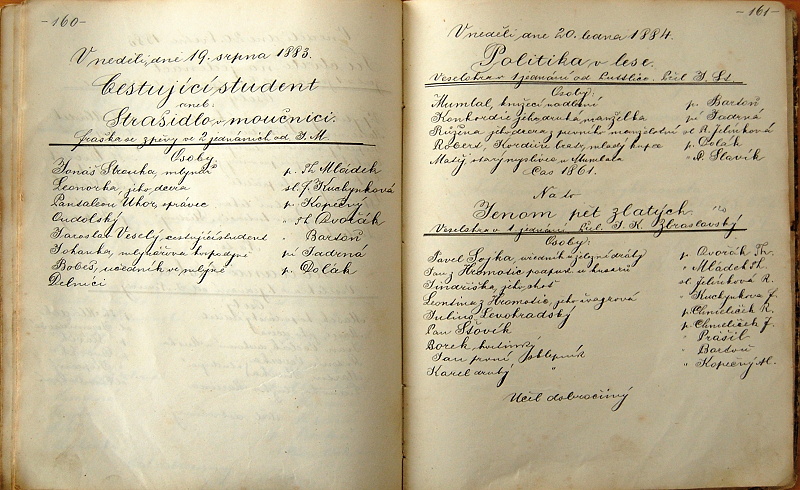 -160-
V neděli, dne 19. srpna 1883.
Cestující student
aneb:
Strašidlo v moučnici.
Fraška se zpěvy ve 2 jednáních od J. M.
Osoby:
Jonáš Strouha, mlynář p. Th. Mládek
Leonorka, jeho dcera sl. J. Kuchynková
Pantaleon Uhor, správec p. Kopečný
Oudolský " Th. Dvořák
Jaroslav Veselý, cestující student " Bartoň
Johanka, mlynářova hospodyně pí Jadrná
Bobeš, učedník ve mlýně p. Dolák
Dělníci
-161-
V neděli, dne 20. ledna 1884.
Politika v lese.
Veselohra v 1 jednání od Přel. J. Št.
Osoby:
Mumlal, knížecí nadlesní p. Bartoň
Konkordie, jeho druhá manželka pí Jadrná
Růžena, jeho dcera z prvního manželství sl. R. Jelínková
Robert, Kordiin bratr, mladý kupec p. Dolák
Matěj, starý myslivec u Mumlala " A. Slavík
Čas 1861.
Na to
Jenom pět zlatých.
Veselohra v 1 jednání. Přel. J. K. Zbraslavský
Osoby:
Pavel Sojka, úředník u železné dráhy p. Dvořák Th.
Jan z Hromotic, poapur. u husarů " Mládek Th.
Jindřiška, jeho choť sl. Jelínková R.
Leontina z Hromotic, jeho švagrová " Kuchynkova J.
Julius Levohradský p. Chmelíček R.
Pan Šťovík p. Chmelíček J.
Borek, hostinský " Prášil
Jan první sklepník " Bartoň
Karel druhý " " Kopečný Al.
Účel dobročinný